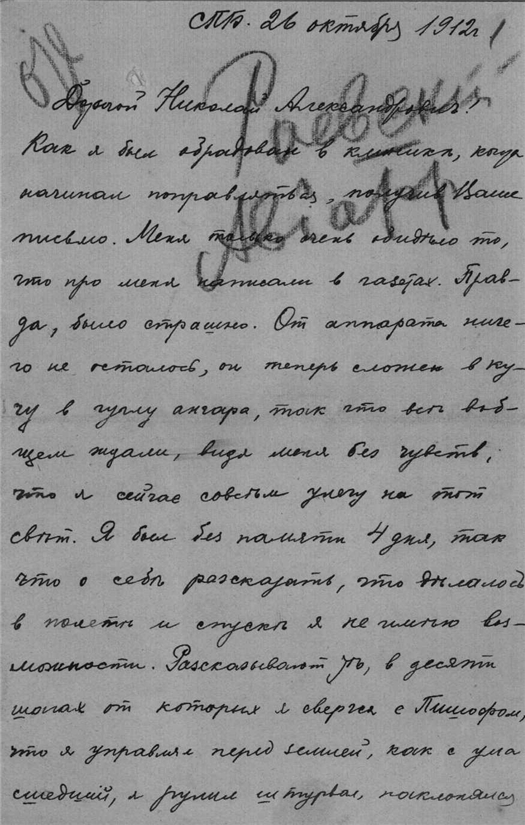 СПБ. 26 октября 1912 г
Дорогой Николай Александрович!
Раевский
Авіат
Как я был обрадован в клинике, когда
начинал поправляться, получив Ваше
письмо. Меня только очень обидѣло то,
что про меня написали в газетах. Прав-
да, было страшно. От аппарата ниче-
го не осталось, он теперь сложен в ку-
чу в углу ангара, так что всѣ воб-
щем ждали, видя меня без чувств,
что я сейчас совсѣм улечу на тот
свѣт. Я был без памяти 4 дня, так
что о себѣ разсказать, что дѣлалось
в полетѣ и спускѣ я не имѣю воз-
можности. Разсказывают, в десяти
шагах от которых я свергся с
что я управлял перед землей, как с ума
сшедший, я рулил штурвал, наклонялся